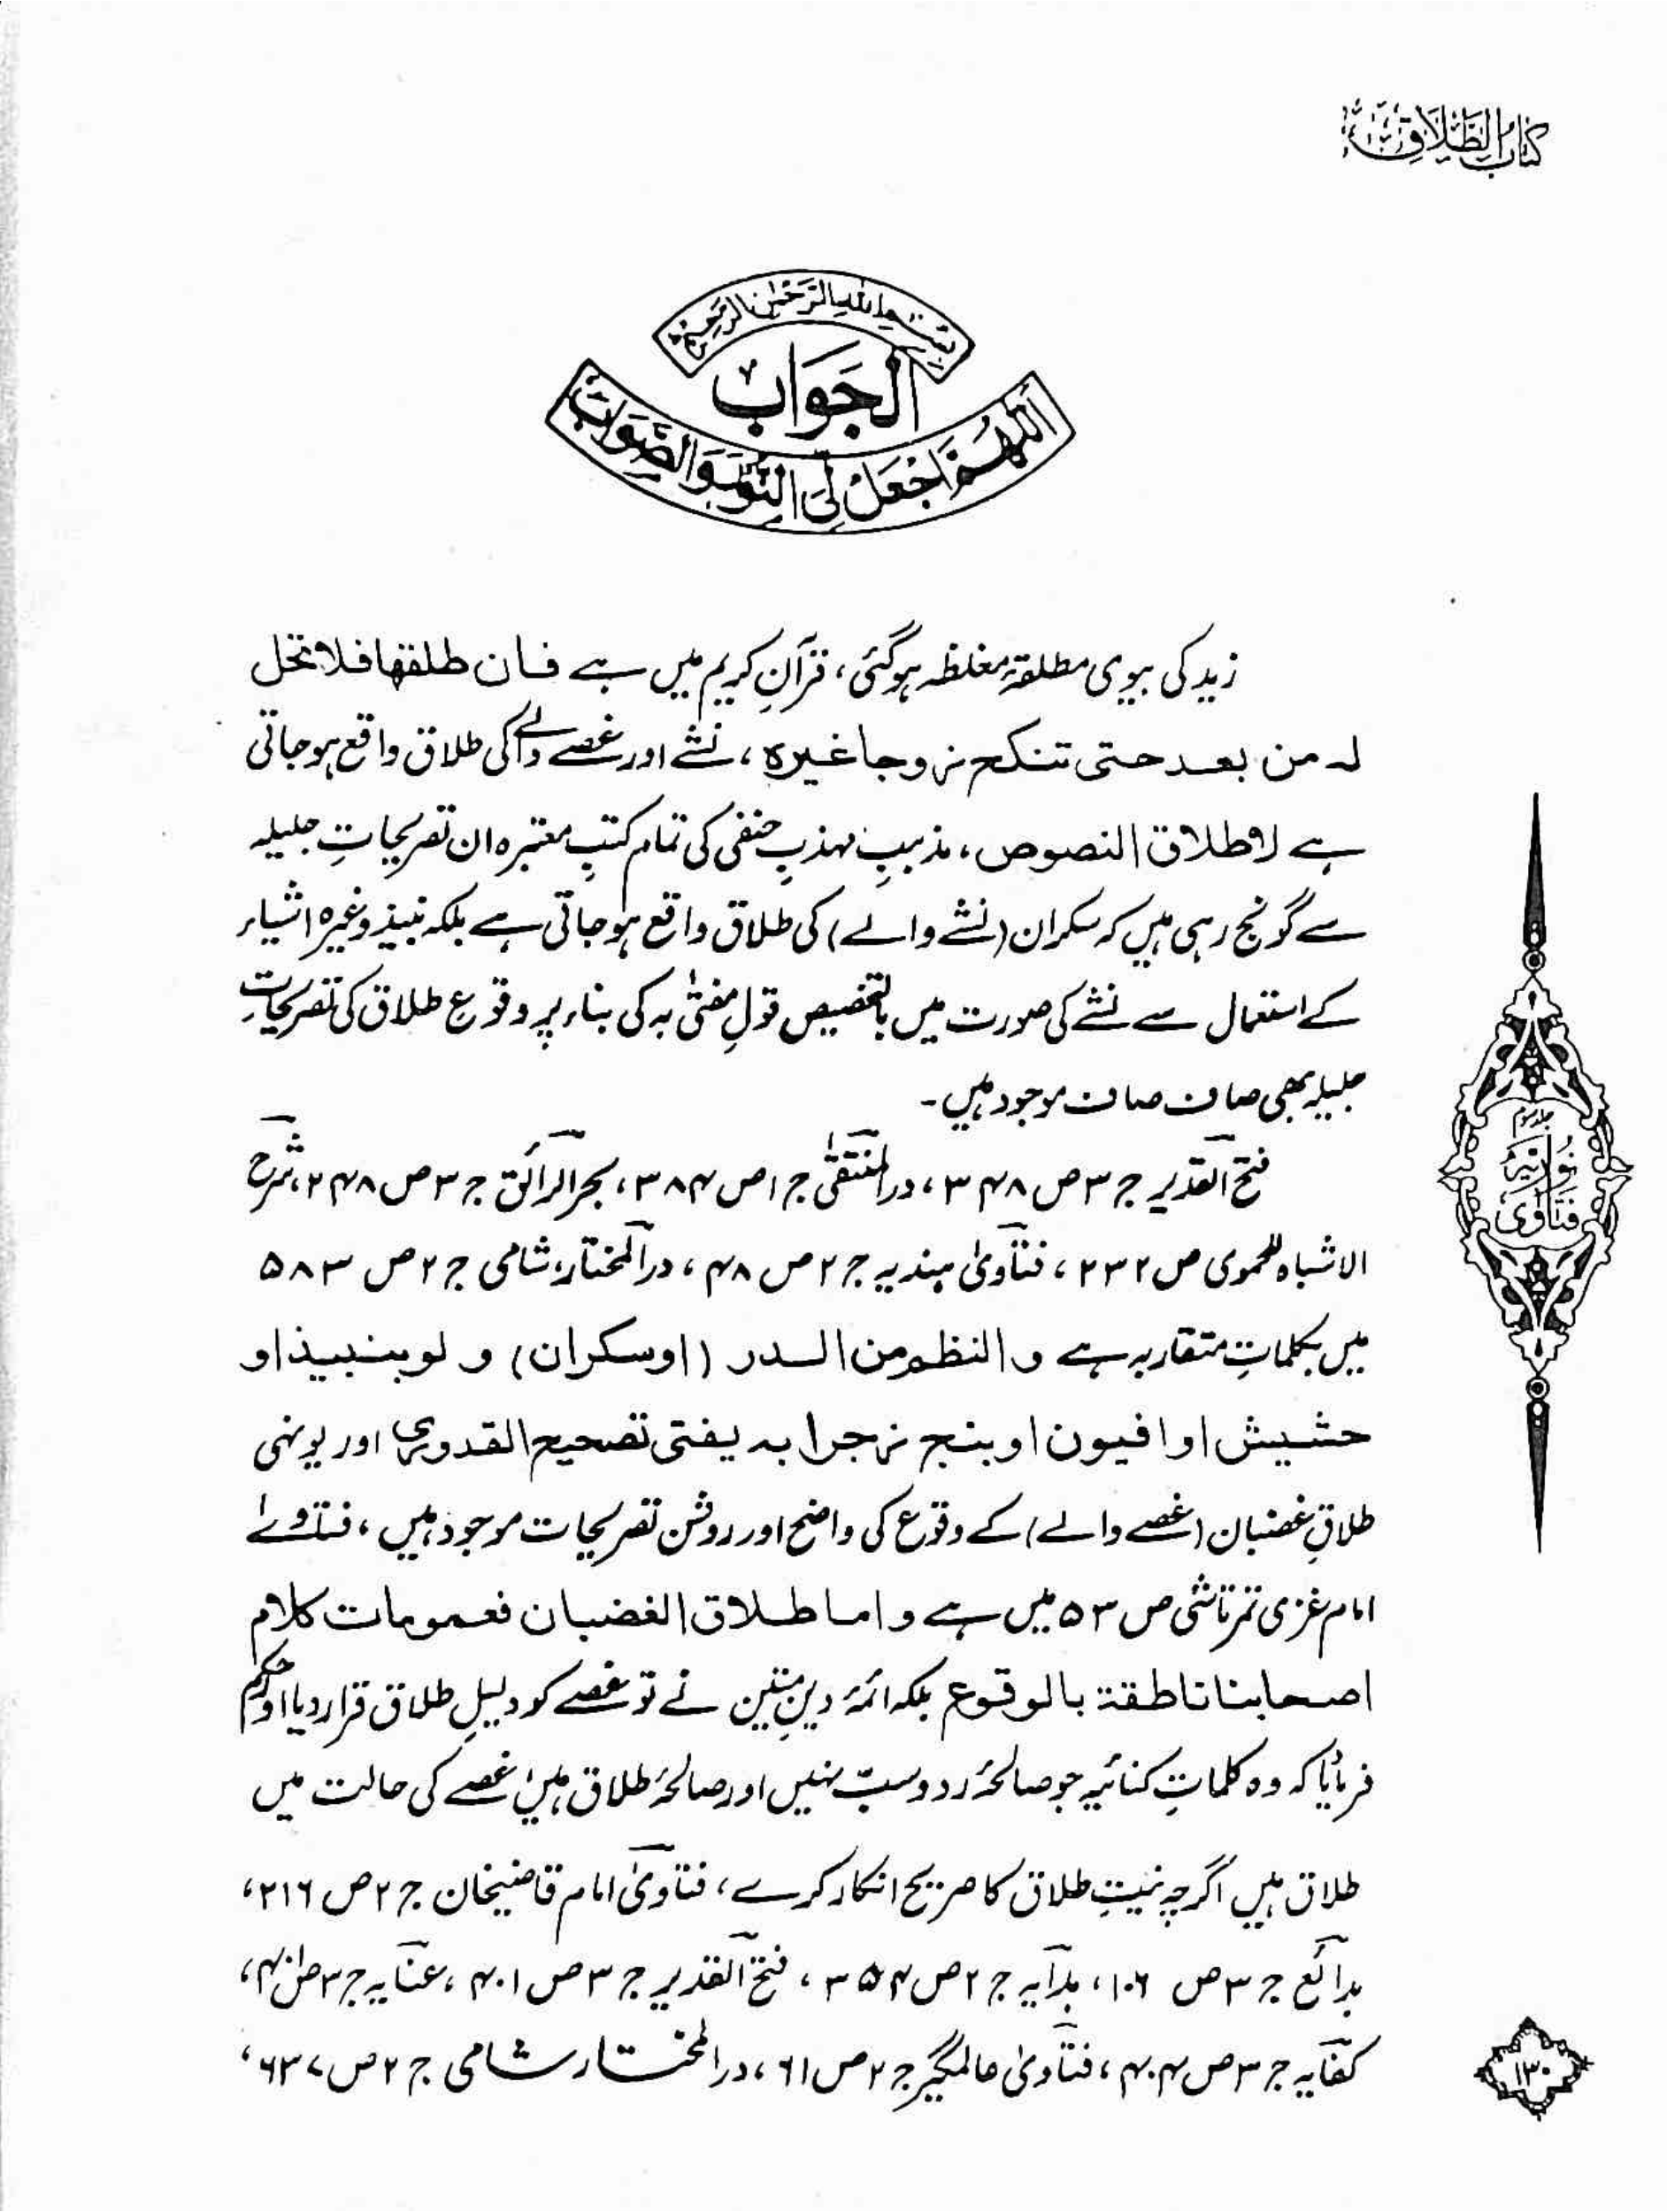 كتاب الطلاق
بسم الله الرحمن الرحيم
الجواب
اللهم اجعل لي النور والصواب
زید کی بیوی مطلقۂ مغلظہ ہوگئی، قرآنِ کریم میں ہے فان طلقها فلا تحل
له من بعد حتى تنكح زوجا غيره، نشے اور غصے والے کی طلاق واقع ہوجاتی
ہے لاطلاق النصوص، مذہبِ مہذبِ حنفی کی تمام کتبِ معتبرہ ان تصریحاتِ جلیلہ
سے گونج رہی ہیں کہ سکران (نشے والے) کی طلاق واقع ہوجاتی ہے بلکہ نبیذ وغیرہ اشیاء
کے استعمال سے نشے کی صورت میں بالتخصیص قولِ مفتیٰ بہ کی بناء پر وقوعِ طلاق کی تصریحاتِ
جلیلہ بھی صاف صاف موجود ہیں۔
فتح القدیر ج ۳ ص ۳۴۸، درالمنتقیٰ ج ۱ ص ۳۸۴، بحرالرائق ج ۳ ص ۲۴۸، شرح
الاشباہ للحموی ص ۲۳۲، فتاویٰ ہندیہ ج ۲ ص ۴۸، درالمختار، شامی ج ۲ ص ۵۸۳
میں بکلماتِ متقاربہ ہے والنظم من الدر (او سكران) و لو بنبيذ او
حشيش او افيون او بنج زجرا به يفتى تصحيح القدوري اور یونہی
طلاقِ غضبان (غصے والے) کے وقوع کی واضح اور روشن تصریحات موجود ہیں، فتاویٰ
امام غزی تمرتاشی ص ۵۳ میں ہے واما طلاق الغضبان فعمومات كلام
اصحابنا ناطقة بالوقوع بلکہ ائمۂ دینِ متین نے تو غصے کو دلیلِ طلاق قرار دیا اور حکم
فرمایا کہ وہ کلماتِ کنائیہ جو صالحۂ رد و سبّ نہیں اور صالحۂ طلاق ہیں، غصے کی حالت میں
طلاق ہیں اگرچہ نیتِ طلاق کا صریح انکار کرے، فتاویٰ امام قاضیخان ج ۲ ص ۲۱۶،
بدائع ج ۳ ص ۱۰۶، ہدایہ ج ۲ ص ۳۵۴، فتح القدیر ج ۳ ص ۴۰۱، عنایہ ج ۳ ص ۴۰۱،
کفایہ ج ۳ ص ۴۰۴، فتاویٰ عالمگیر ج ۲ ص ۶۱، درالمختار شامی ج ۲ ص ۶۳۷،
فتاویٰ نوریہ
جلد سوم
۱۳۰